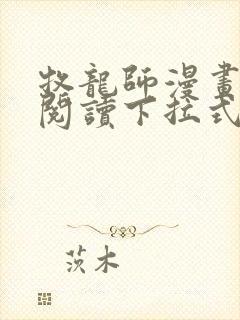 牧龍師漫畫
閱讀下拉式
茨木